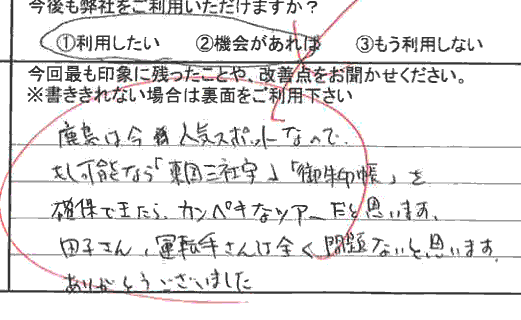 今後も弊社をご利用いただけますか？
①利用したい ②機会があれば ③もう利用しない
今回最も印象に残ったことや、改善点をお聞かせください。
※書ききれない場合は裏面をご利用下さい
鹿島は今 人気スポットなので、
もし可能なら「東国三社守」「御朱印帳」を
確保できたら、カンペキなツアーだと思います。
田子さん、運転手さんは全く問題ないと思います。
ありがとうございました